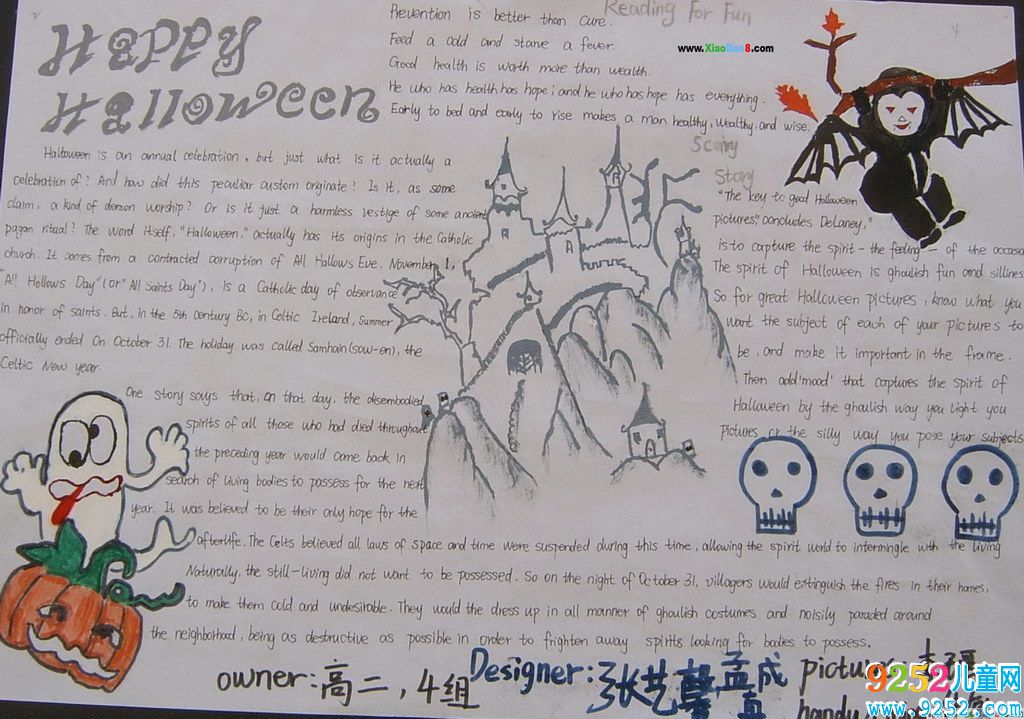 Happy
Halloween
Reading For Fun
Prevention is better than cure.
Feed a cold and starve a fever.
Good health is worth more than wealth.
He who has health has hope; and he who has hope has everything.
Early to bed and early to rise makes a man healthy, wealthy and wise.
www.XiaoBao8.com
Halloween is an annual celebration, but just what is it actually a
celebration of? And how did this peculiar custom originate? Is it, as some
claim, a kind of demon worship? Or is it just a harmless vestige of some ancient
pagan ritual? The word itself, "Halloween," actually has its origins in the Catholic
church. It comes from a contracted corruption of All Hallows Eve. November 1,
"All Hollows Day" (or "All Saints Day"), is a Catholic day of observance
in honor of saints. But, in the 5th century BC, in Celtic Ireland, summer
officially ended On October 31. The holiday was called Samhain (sow-en), the
Celtic New year.
One story says that, on that day, the disembodied
spirits of all those who had died throughout
the preceding year would come back in
search of living bodies to possess for the next
year. It was believed to be their only hope for the
afterlife. The Celts believed all laws of space and time were suspended during this time, allowing the spirit world to intermingle with the living
Naturally, the still-living did not want to be possessed. So on the night of October 31, villagers would extinguish the fires in their homes,
to make them cold and undesirable. They would the dress up in all manner of ghoulish costumes and noisily paraded around
the neighborhood, being as destructive as possible in order to frighten away spirits looking for bodies to possess.
Scary
Story
"The key to good Halloween
pictures," concludes DeLaney,"
is to capture the spirit - the feeling - of the occasion
The spirit of Halloween is ghoulish fun and silliness
So for great Halloween pictures, know what you
want the subject of each of your pictures to
be, and make it important in the frame.
Then add 'mood' that captures the spirit of
Halloween by the ghoulish way you light you
pictures or the silly way you pose your subjects
owner: 高二, 4组
Designer: 张艺馨 孟成真
picture:
handy
9252儿童网
www.9252.com